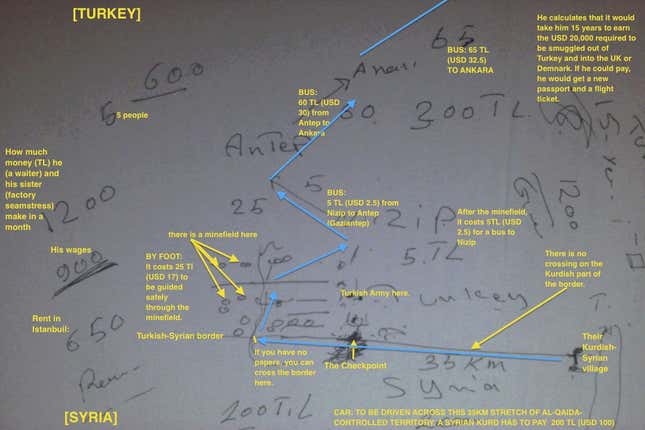 [TURKEY]
He calculates that it would
take him 15 years to earn
the USD 20,000 required to
be smuggled out of
Turkey and into the UK or
Demnark. If he could pay,
he would get a new
passport and a flight
ticket.
65
BUS: 65 TL
(USD 32.5)
TO ANKARA
600
5
5 people
BUS:
60 TL (USD
30) from
Antep to
Ankara
60
300 TL
How much
money (TL) he
(a waiter) and
his sister
(factory
seamstress)
make in a
month
1200
Antep
5
25
BUS:
5 TL (USD 2.5) from
Nizip to Antep
(Gaziantep)
1200
After the minefield,
it costs 5TL (USD
2.5) for a bus to
Nizip
His wages
900
there is a minefield here
BY FOOT:
It costs 25 Tl
(USD 17) to
be guided
safely
through the
minefield.
5.TL
There is no
crossing on the
Kurdish part of
the border.
Turkish Army here.
Rent in
Istanbuil:
650
Turkish-Syrian border
If you have no
papers, you can
cross the border
here.
The Checkpoint
35 KM
Their
Kurdish-
Syrian
village
Syria
[SYRIA]
200 TL
CAR: TO BE DRIVEN ACROSS THIS 35KM STRETCH OF AL-QAIDA-
CONTROLLED TERRITORY, A SYRIAN KURD HAS TO PAY 200 TL (USD 100)